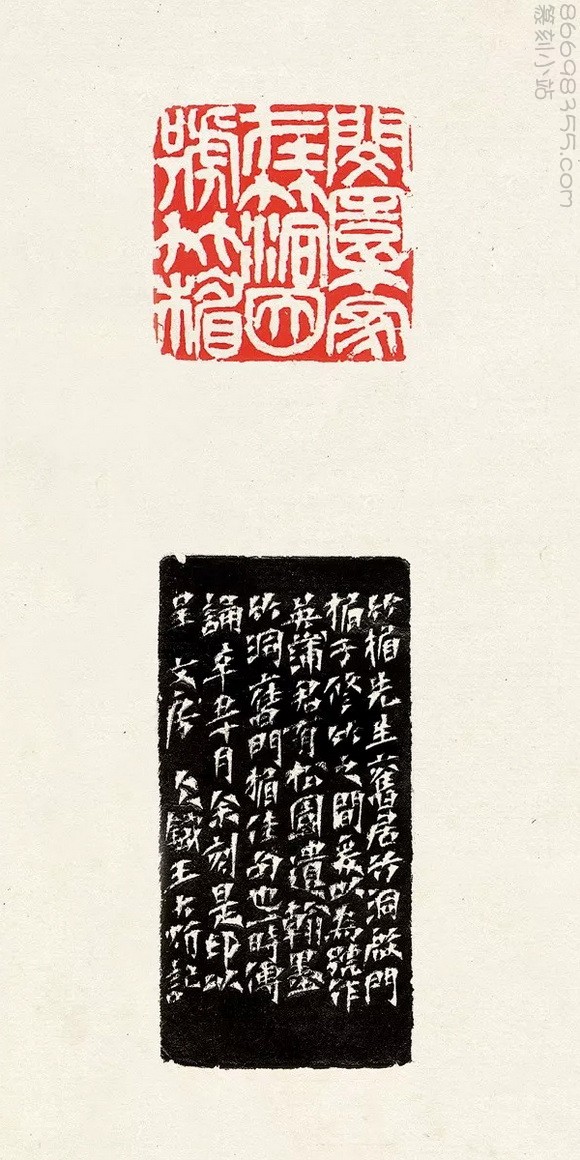 86698755.com
篆刻小站
家
在竹洞西
號竹楣
竹楣先生舊居竹洞啟門
楣于修竹之間爰以為號作
英蒲君有松園遺翰墨
竹洞舊門楣佳句也一時傳
誦辛丑十月余刻是印以
呈 文房 仌鐵王大炘記